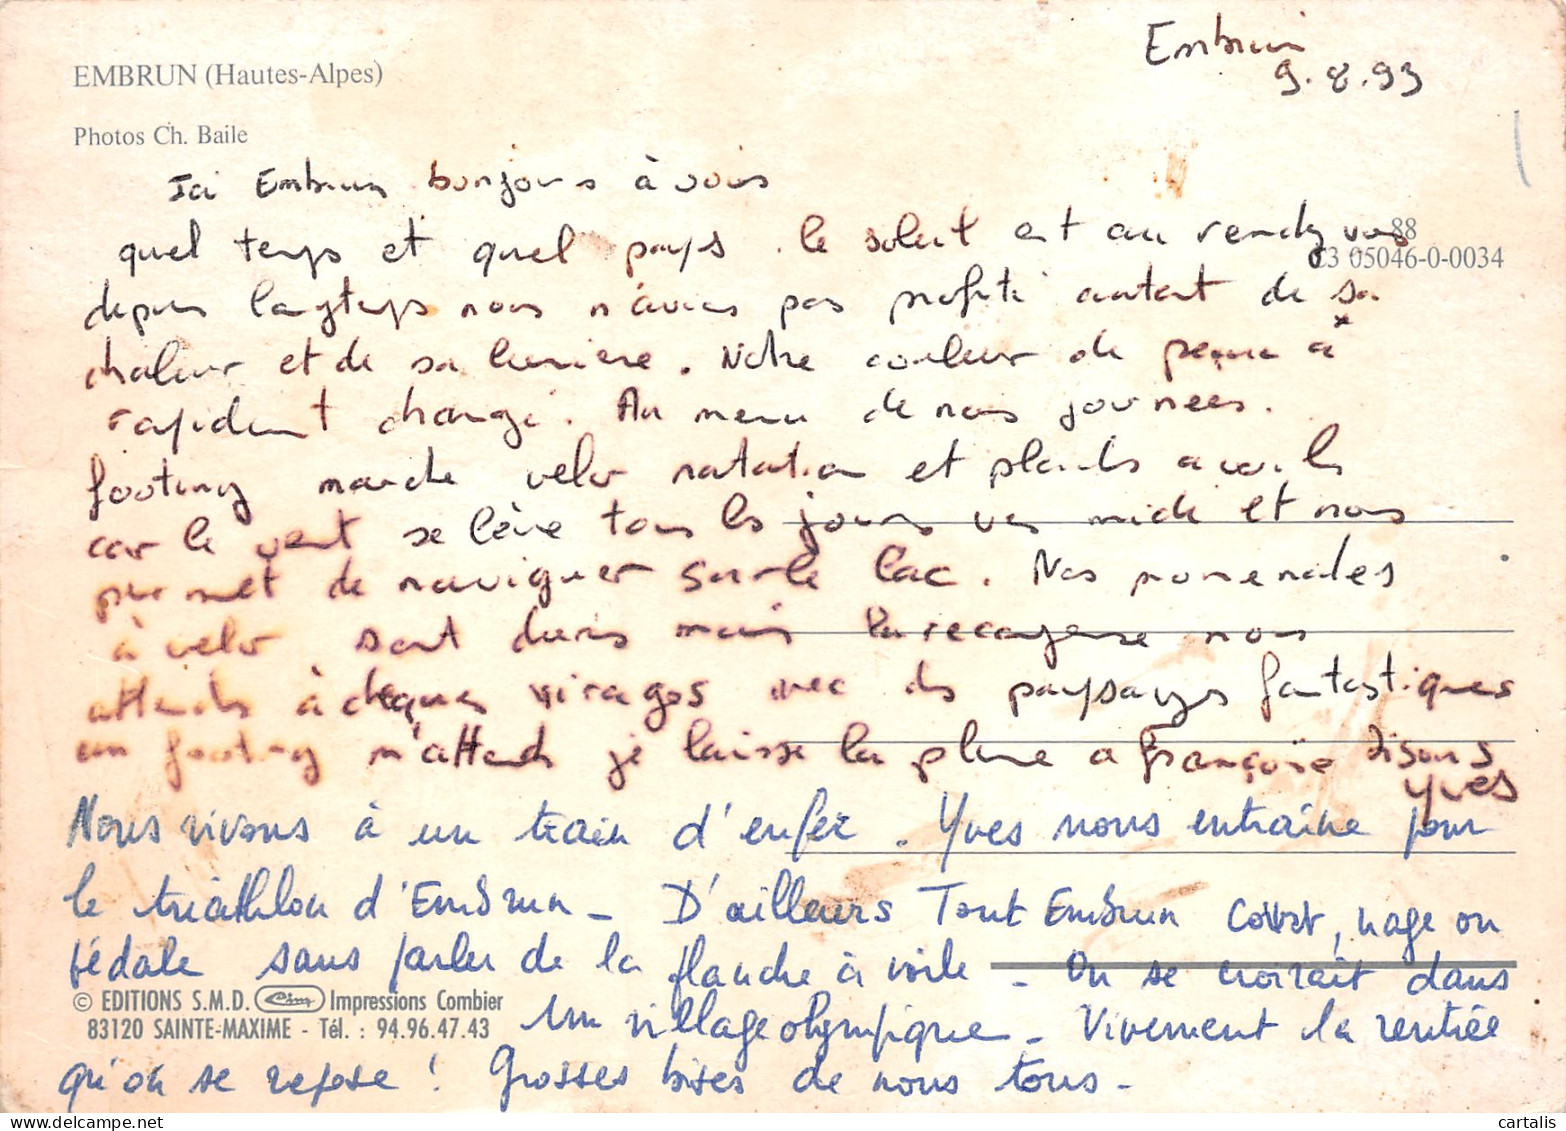 EMBRUN (Hautes-Alpes)
Photos Ch. Baile
Embrun
9.8.93
88
23 05046-0-0034
Ici Embrun bonjour à vous
quel temps et quel pays. le soleil est au rendez vous
depuis longtemps nous n'avions pas profité autant de sa
chaleur et de sa lumière. Notre couleur de peau a
rapidement changé. Au menu de nos journées.
footing marche velo natation et planche a voile
car le vent se lève tous les jours vers midi et nous
permet de naviguer sur le lac. Nos promenades
à velo sont dures mais la recompense nous
attends à chaque virages avec des paysages fantastiques
un footing m'attend je laisse la plume a Françoise Bisous
Yves
Nous vivons à un train d'enfer. Yves nous entraîne pour
le triathlon d'Embrun - D'ailleurs Tout Embrun court, nage ou
pédale sans parler de la planche à voile - On se croirait dans
un village olympique - Vivement la rentrée
qu'on se repose ! Grosses bises de nous tous -
© EDITIONS S.M.D. Cim Impressions Combier
83120 SAINTE-MAXIME - Tél. : 94.96.47.43
cartalis